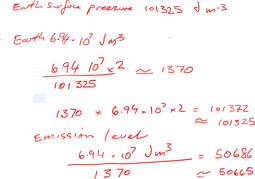 Earth surface pressure 101325 J m-3
Earth 6.94·10⁷ J m³
694 10⁷ × 2 / 101325 ≃ 1370
1370 × 6.94 × 10⁷ × 2 = 101372
≈ 101325
Emission level
6.94 · 10⁷ J m³ / 1370 = 50686
≈ 50665